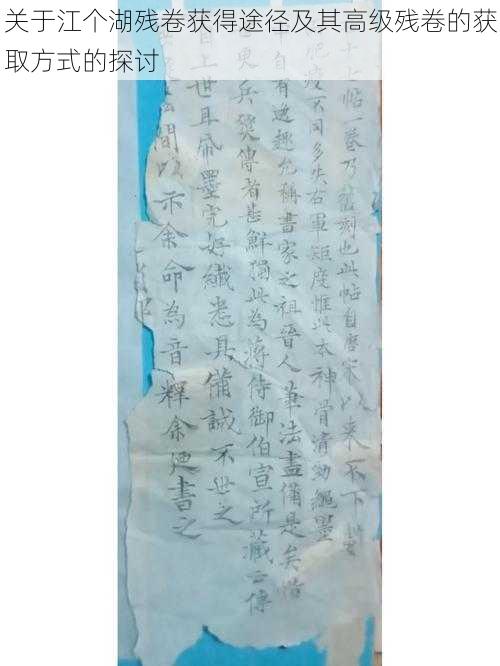 关于江个湖残卷获得途径及其高级残卷的获
取方式的探讨
十七帖一卷乃舊刻也此帖自唐宋以來不下
肥瘦不同多失右軍矩度惟此本神骨清勁繩墨
自有逸趣允稱書家之祖晉人筆法盡備是矣惜
更兵燹傳者甚鮮獨此為蔣侍御伯宣所藏云傳
自上世且帋墨完好纖悉具備誠不世之
間以示余命為音釋余廼書之